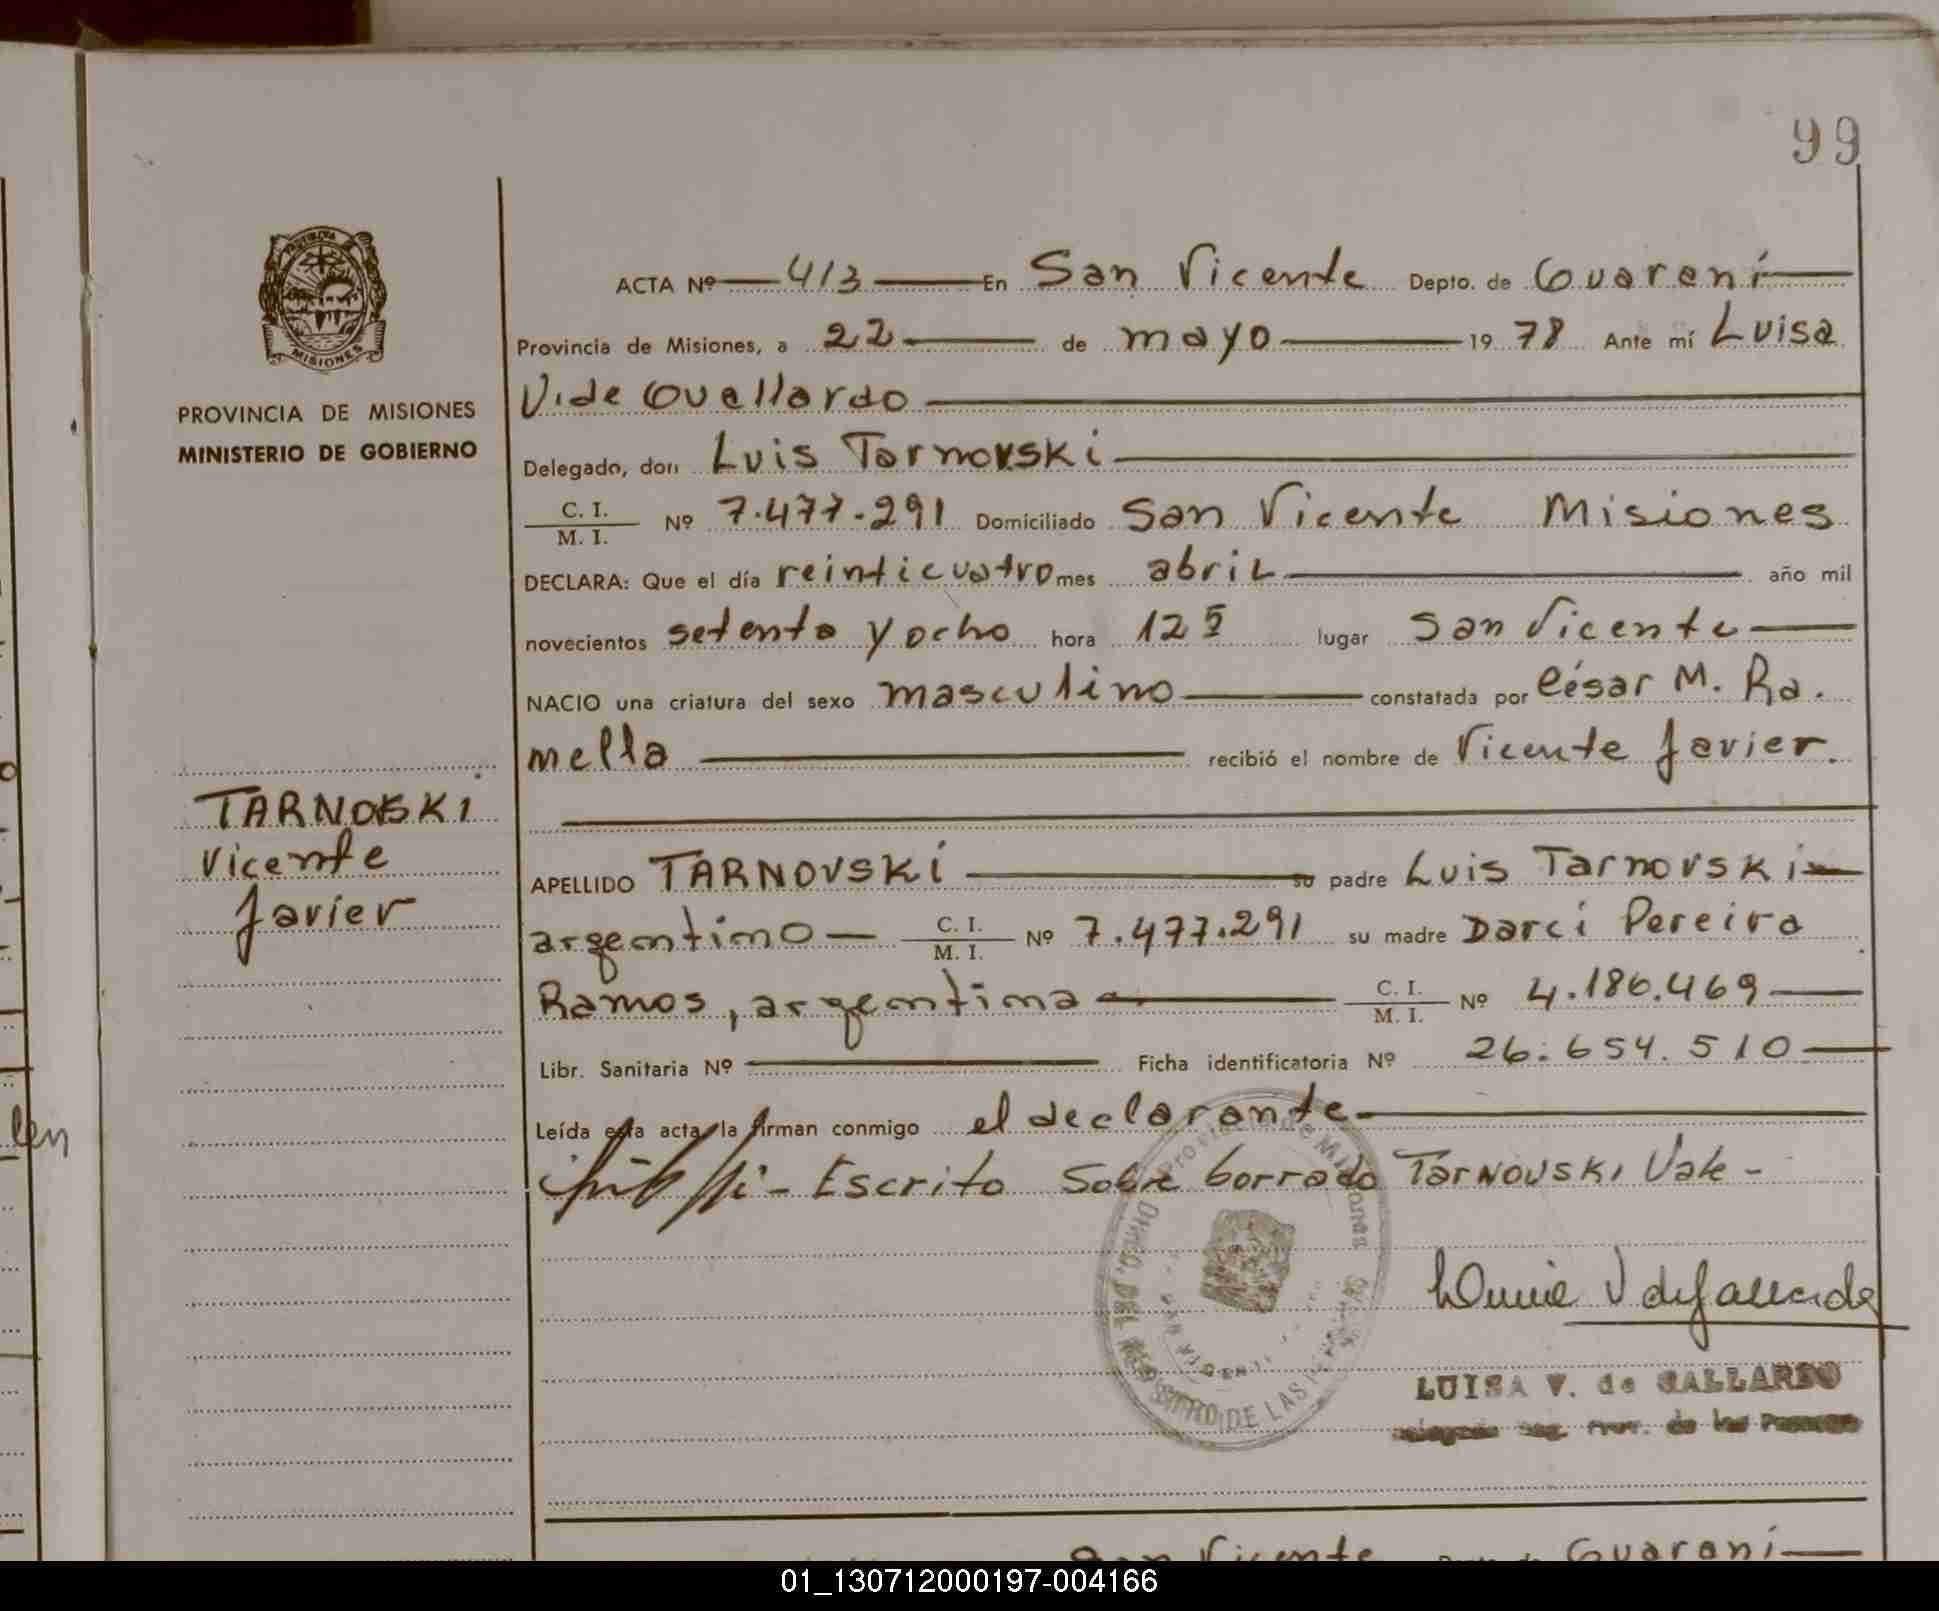 99
PROVINCIA DE MISIONES
MINISTERIO DE GOBIERNO
TARNOVSKI
Vicente
Javier
ACTA Nº 413 En San Vicente Depto. de Guaraní
Provincia de Misiones, a 22 de mayo 19 78 Ante mí Luisa
V. de Guallardo
Delegado, don Luis Tarnovski
C. I. / M. I. Nº 7.477.291 Domiciliado San Vicente Misiones
DECLARA: Que el día veinticuatro mes abril año mil
novecientos setenta y ocho hora 12 5 lugar San Vicente
NACIO una criatura del sexo masculino constatada por César M. Ra.
mella recibió el nombre de Vicente Javier.
APELLIDO TARNOVSKI su padre Luis Tarnovski
argentino C. I. / M. I. Nº 7.477.291 su madre Darci Pereira
Ramos, argentina C. I. / M. I. Nº 4.186.469
Libr. Sanitaria Nº Ficha identificatoria Nº 26.654.510
Leída esta acta, la firman conmigo el declarante
- Escrito Sobre borrado TARNOVSKI Vale -
Provincia de Misiones
DIREC. DEL REGISTRO DE LAS
LUISA V. de GALLARDO
Prov. de las Personas
San Vicente Depto. de Guaraní
len
01_130712000197-004166